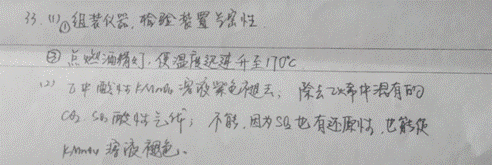 33. (1) ①组装仪器, 检验装置气密性.
② 点燃酒精灯, 使温度迅速升至170℃
(2) 乙中酸性KMnO₄溶液紫色褪去; 除去乙烯中混有的
CO₂ SO₂ 酸性气体; 不能, 因为SO₂也有还原性, 也能使
KMnO₄ 溶液褪色.